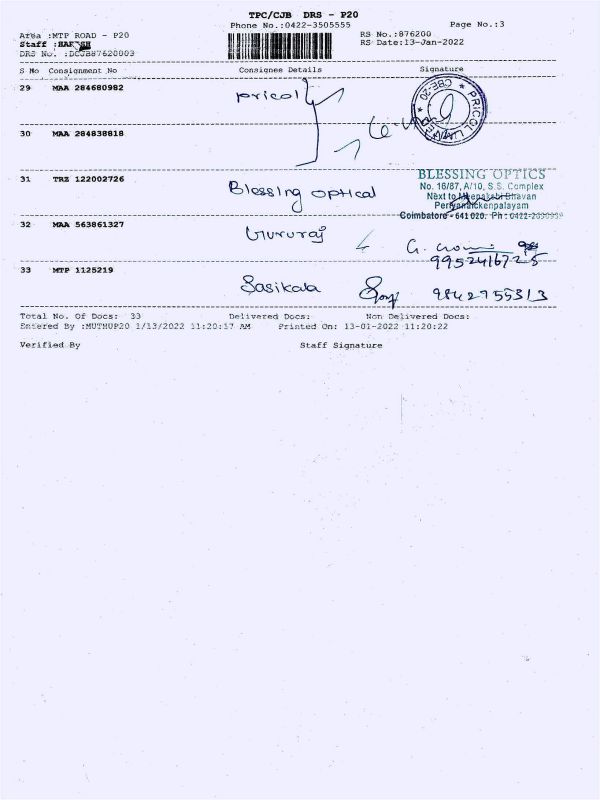 TPC/CJB DRS - P20
Phone No.:0422-3505555
Page No.:3
Area :MTP ROAD - P20
RS No.:876200
Staff :
RS Date:13-Jan-2022
DRS No. :DCJB87620003
S No Consignment No Consignee Details Signature
29 MAA 284680982 pricol
PRICOL LIMITED * CBE-20 *
30 MAA 284838818
31 TRZ 122002726 Blessing optical
BLESSING OPTICS
No. 16/87, A/10, S.S. Complex
Next to Meenakshi Bhavan
Periyanaickenpalayam
Coimbatore - 641 020. Ph : 0422-
32 MAA 563861327 Gururaj
9952416725
33 MTP 1125219 Sasikala 9842755313
Total No. Of Docs: 33 Delivered Docs: Non Delivered Docs:
Entered By :MUTHUP20 1/13/2022 11:20:17 AM Printed On: 13-01-2022 11:20:22
Verified By Staff Signature